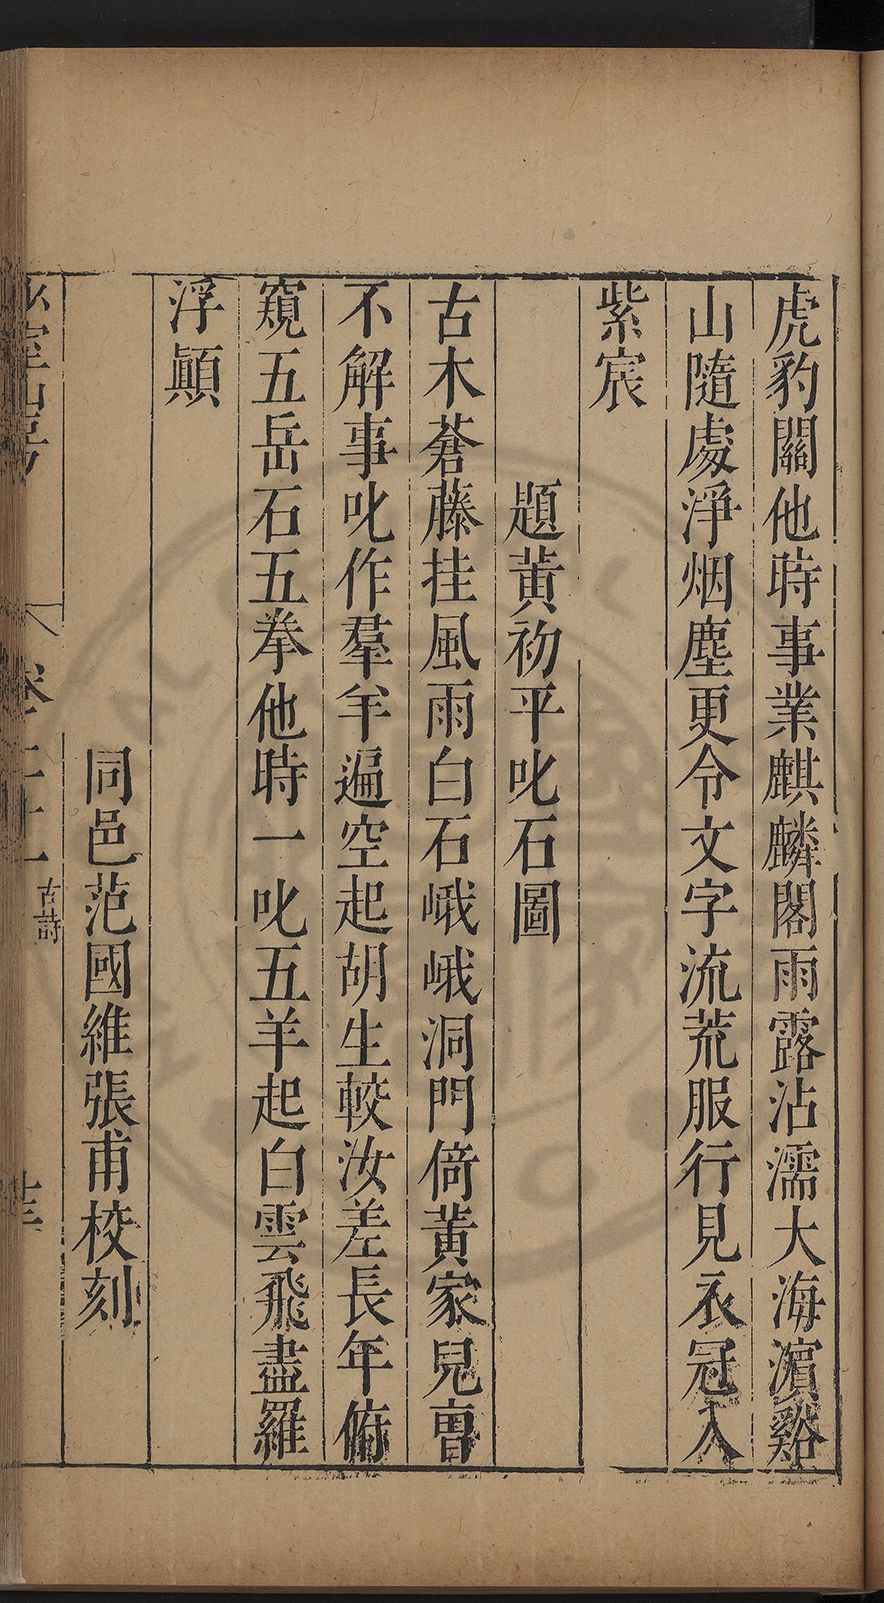 虎豹關他時事業麒麟閣雨露沾濡大海濵谿
山隨處淨烟塵更令文字流荒服行見衣冠入
紫宸
題黃初平叱石圖
古木蒼藤挂風雨白石峨峨洞門倚黃家兒曹
不解事叱作羣羊遍空起胡生較汝差長年俯
窺五岳石五拳他時一叱五羊起白雲飛盡羅
浮顚
同邑范國維張甫校刻
古詩